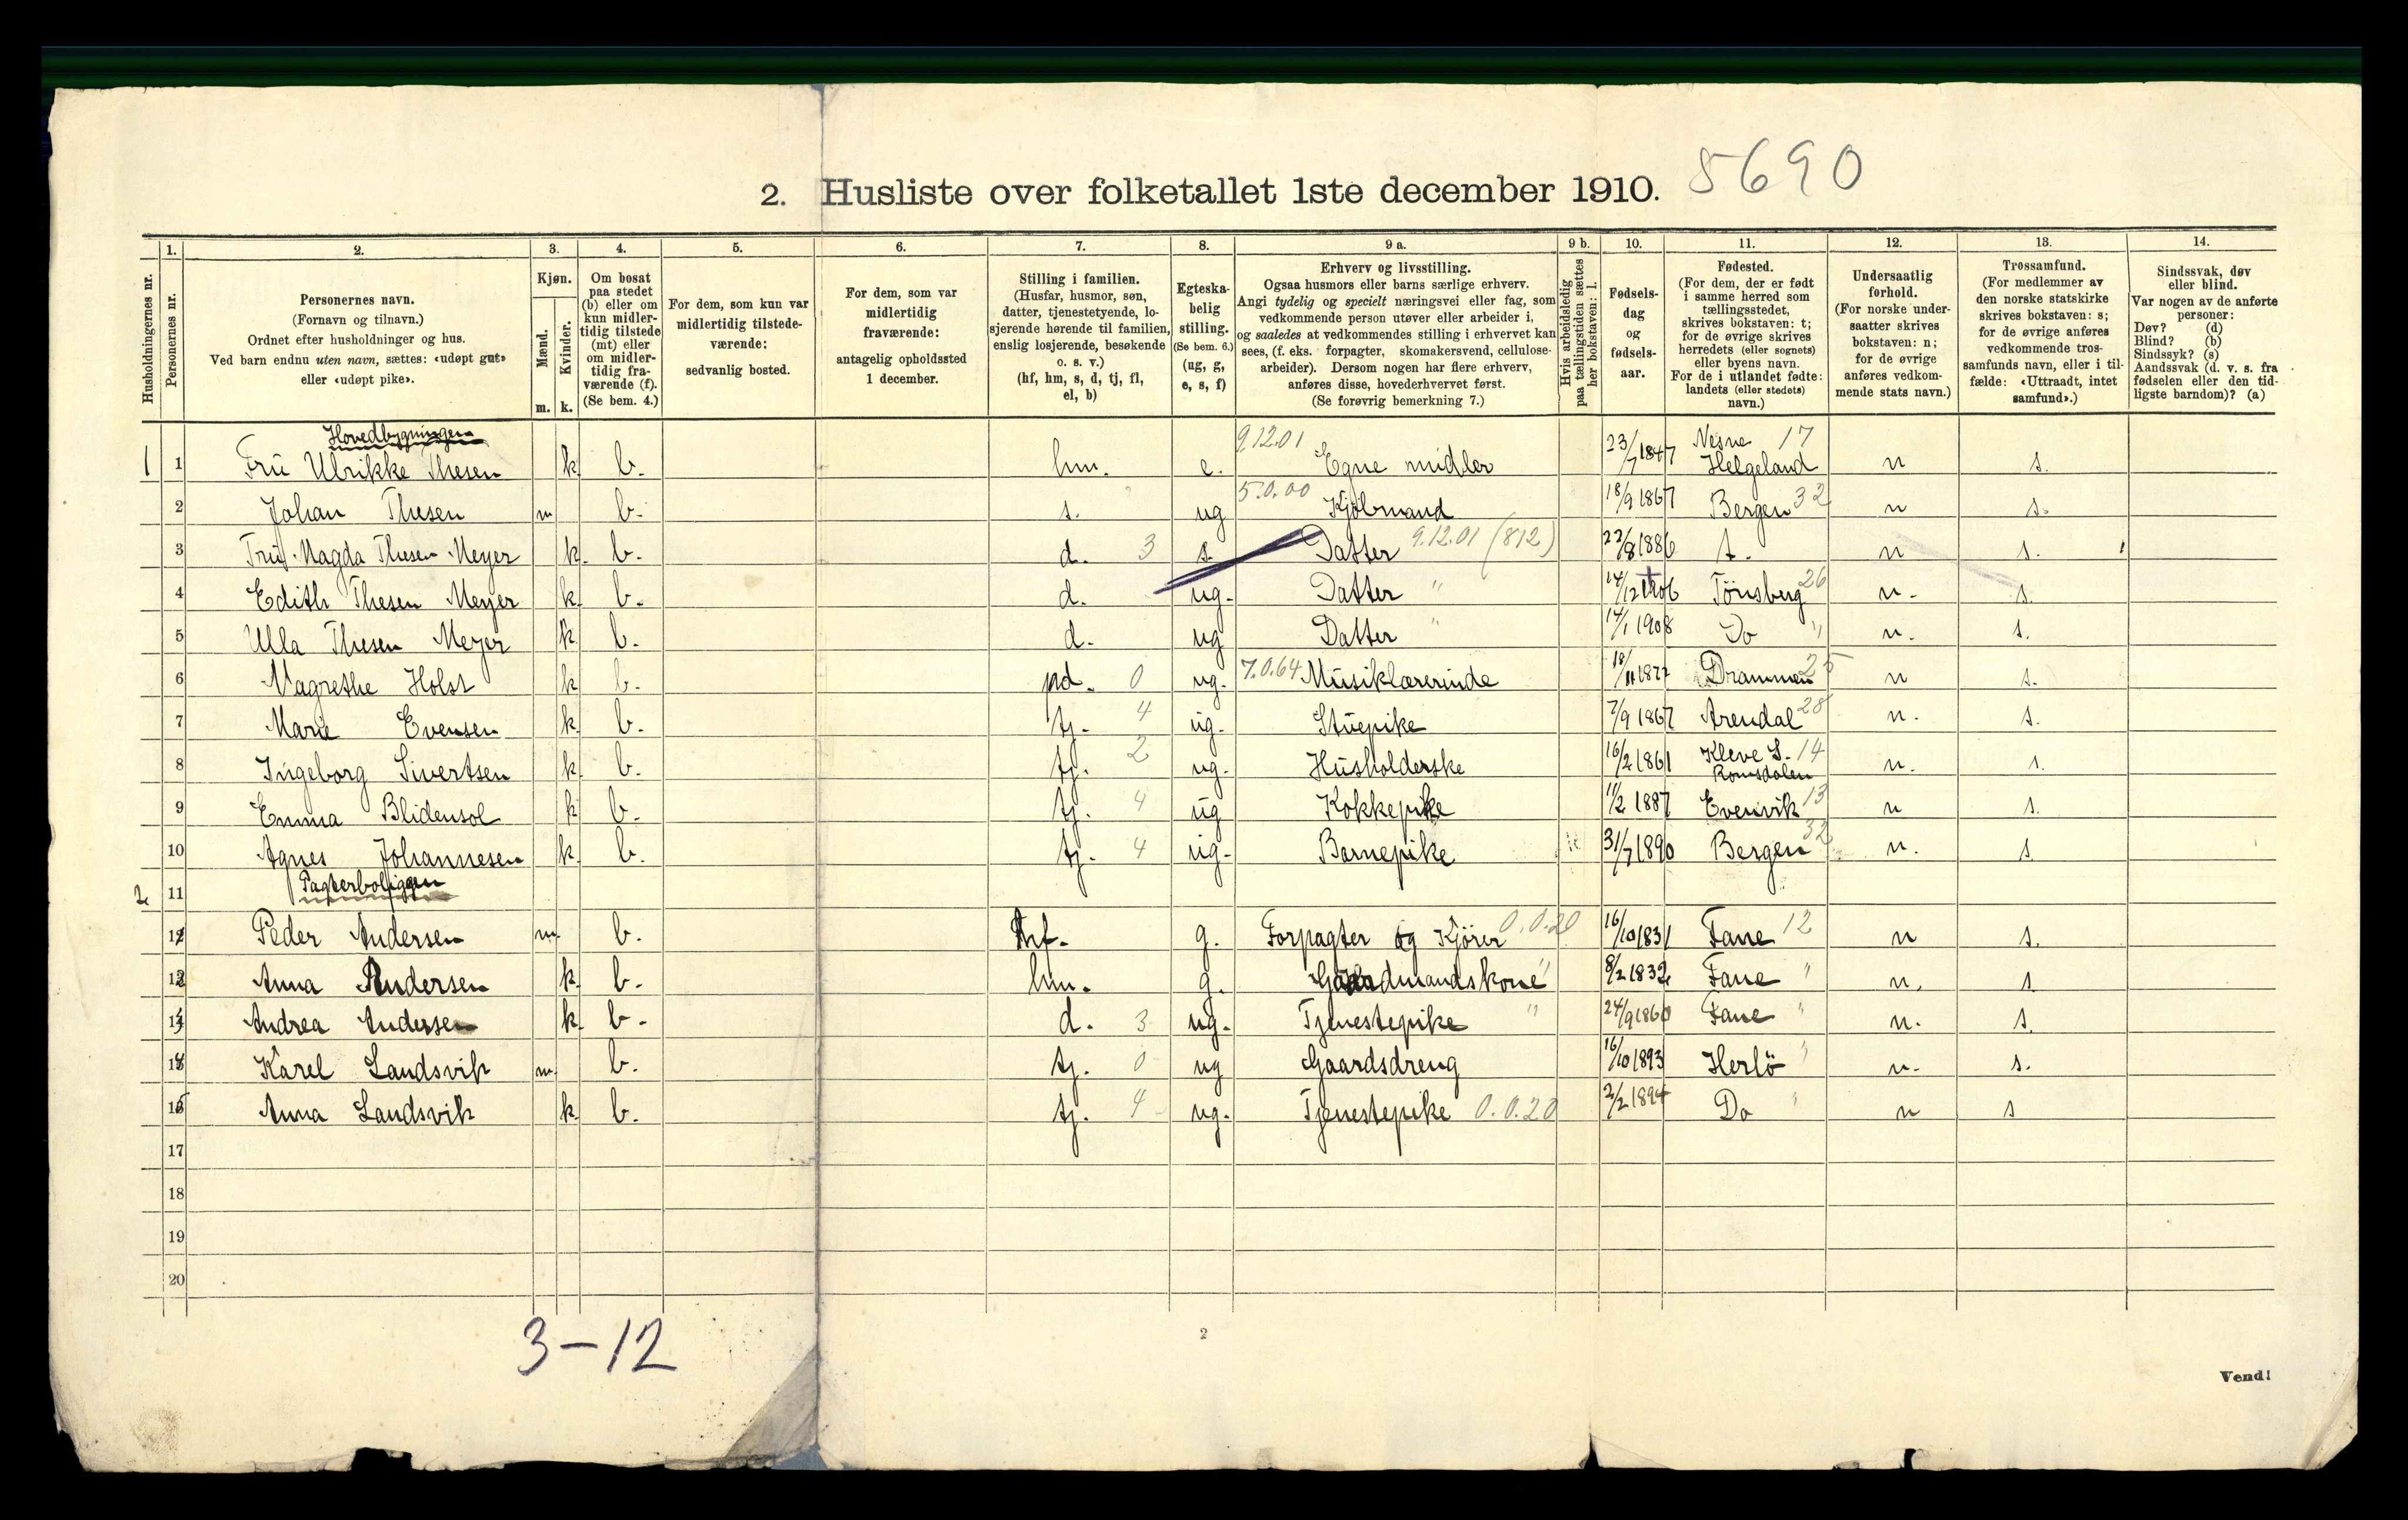 2. Husliste over folketallet 1ste december 1910. 5690
Husholdningernes nr.
1. Personernes nr.
2. Personernes navn.
(Fornavn og tilnavn.)
Ordnet efter husholdninger og hus.
Ved barn endnu uten navn, sættes: «udøpt gut»
eller «udøpt pike».
3. Kjøn.
Mænd. m.
Kvinder. k.
4. Om bosat
paa stedet
(b) eller om
kun midler-
tidig tilstede
(mt) eller
om midler-
tidig fra-
værende (f).
(Se bem. 4.)
5. For dem, som kun var
midlertidig tilstede-
værende:
sedvanlig bosted.
6. For dem, som var
midlertidig
fraværende:
antagelig opholdssted
1 december.
7. Stilling i familien.
(Husfar, husmor, søn,
datter, tjenestetyende, lo-
sjerende hørende til familien,
enslig losjerende, besøkende
o. s. v.)
(hf, hm, s, d, tj, fl,
el, b)
8. Egteska-
belig
stilling.
(Se bem. 6.)
(ug, g,
e, s, f)
9 a. Erhverv og livsstilling.
Ogsaa husmors eller barns særlige erhverv.
Angi tydelig og specielt næringsvei eller fag, som
vedkommende person utøver eller arbeider i,
og saaledes at vedkommendes stilling i erhvervet kan
sees, (f. eks. forpagter, skomakersvend, cellulose-
arbeider). Dersom nogen har flere erhverv,
anføres disse, hovederhvervet først.
(Se forøvrig bemerkning 7.)
9 b. Hvis arbeidsledig
paa tællingstiden sættes
her bokstaven: l.
10. Fødsels-
dag
og
fødsels-
aar.
11. Fødested.
(For dem, der er født
i samme herred som
tællingsstedet,
skrives bokstaven: t;
for de øvrige skrives
herredets (eller sognets)
eller byens navn.
For de i utlandet fødte:
landets (eller stedets)
navn.)
12. Undersaatlig
forhold.
(For norske under-
saatter skrives
bokstaven: n;
for de øvrige
anføres vedkom-
mende stats navn.)
13. Trossamfund.
(For medlemmer av
den norske statskirke
skrives bokstaven: s;
for de øvrige anføres
vedkommende tros-
samfunds navn, eller i til-
fælde: «Uttraadt, intet
samfund».)
14. Sindssvak, døv
eller blind.
Var nogen av de anførte
personer:
Døv? (d)
Blind? (b)
Sindssyk? (s)
Aandssvak (d. v. s. fra
fødselen eller den tid-
ligste barndom)? (a)
Hovedbygningen
1 1 Fru Ulrikke Thesen k. b. hm. e. 9.12.01 Egne midler 23/7 1847 Nesne 17 Helgeland n s.
2 Johan Thesen m b. s. ug 5.0.00 Kjöbmand 18/9 1867 Bergen 32 n s.
3 Fru Magda Thesen Meyer k. b. d. 3 s. Datter 9.12.01 (812) 22/8 1886 t. n s.
4 Edith Thesen Meyer k. b. d. ug. Datter " 14/12 1906 Tönsberg 26 n. s.
5 Ulla Thesen Meyer k. b. d. ug Datter " 14/1 1908 Do " n. s.
6 Magrethe Holst k b. pd. 0 ug. 7.0.64 Musiklærerinde 18/11 1877 Drammen 25 n s.
7 Marie Evensen k. b. tj. 4 ug. Stuepike 7/9 1867 Arendal 28 n. s.
8 Ingeborg Sivertsen k. b. tj. 2 ug. Husholderske 16/2 1861 Kleve S. 14 Romsdalen n. s.
9 Emma Blidensol k b. tj. 4 ug Kokkepike 11/2 1887 Evenvik 13 n s.
10 Agnes Johannesen k. b. tj. 4 ug. Barnepike 31/7 1890 Bergen 32 n. s
2 11 Pagterboligen
12 Peder Andersen m. b. hf. g. Forpagter og Kjörer 0.0.20 16/10 1831 Fane 12 n s.
13 Anna Andersen k. b. hm. g. Gaardmandskone " 8/2 1832 Fane " n. s.
14 Andrea Andersen k. b. d. 3 ug. Tjenestepike " 24/9 1860 Fane " n. s.
15 Karel Landsvik m. b. tj. 0 ug Gaardsdreng 16/10 1893 Herlö " n. s.
16 Anna Landsvik k. b. tj. 4 ug. Tjenestepike 0.0.20 2/2 1894 Do " n s
17
18
19
20
3-12
2
Vend!